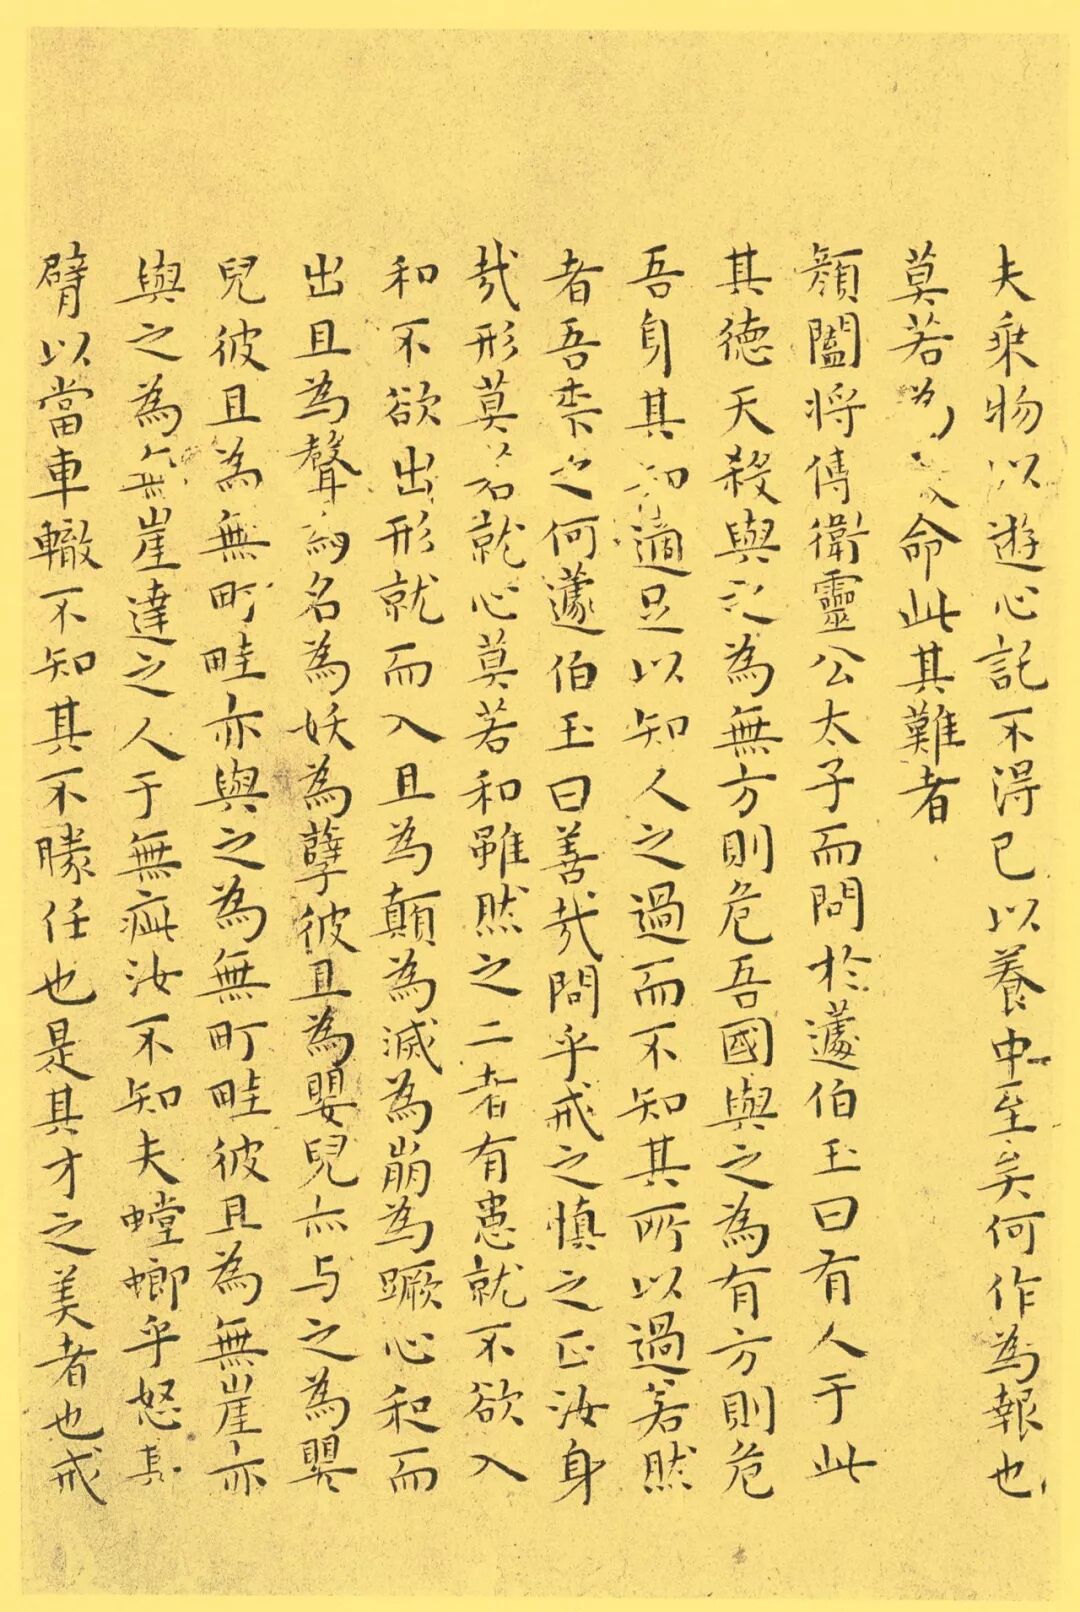 夫乘物以遊心託不得已以養中至矣何作為報也
莫若為致命此其難者
顏闔將傅衛靈公太子而問於蘧伯玉曰有人于此
其德天殺與之為無方則危吾國與之為有方則危
吾身其知適足以知人之過而不知其所以過若然
者吾柰之何蘧伯玉曰善哉問乎戒之慎之正汝身
哉形莫若就心莫若和雖然之二者有患就不欲入
和不欲出形就而入且為顛為滅為崩為蹶心和而
出且為聲為名為妖為孽彼且為嬰兒亦与之為嬰
兒彼且為無町畦亦與之為無町畦彼且為無崖亦
與之為無崖達之人于無疵汝不知夫螳螂乎怒其
臂以當車轍不知其不勝任也是其才之美者也戒